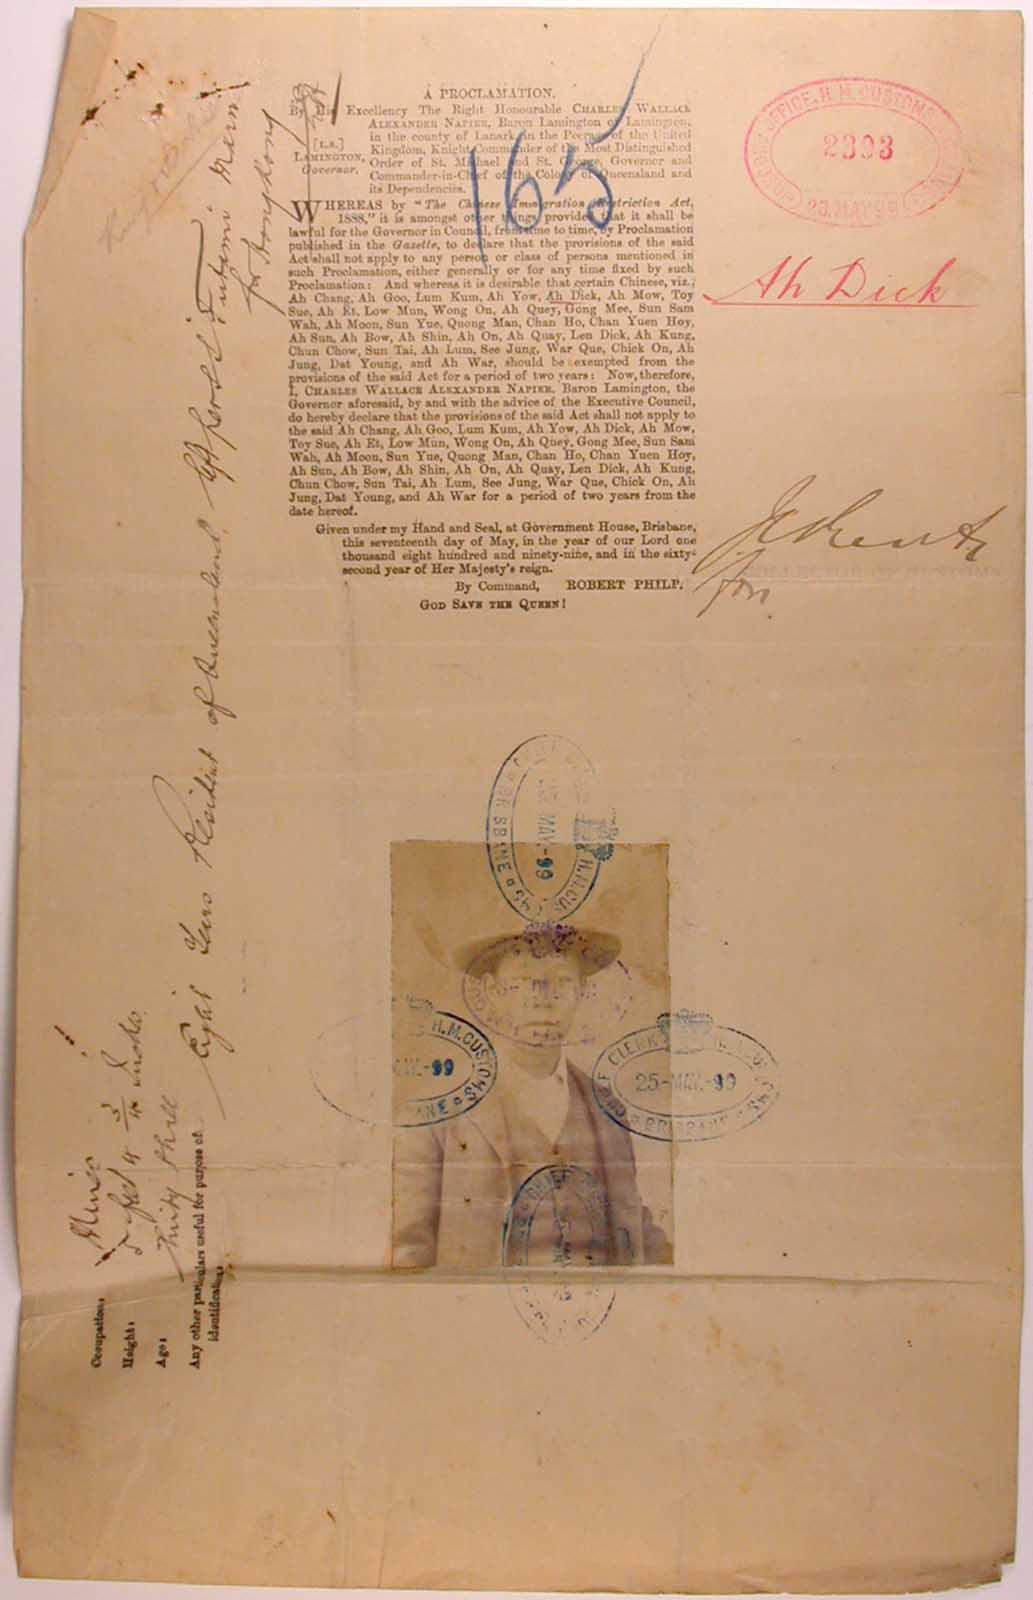 A PROCLAMATION.
By His Excellency The Right Honourable CHARLES WALLACE
ALEXANDER NAPIER, Baron Lamington of Lamington,
in the county of Lanark, in the Peerage of the United
[L.S.] Kingdom, Knight Commander of the Most Distinguished
LAMINGTON, Order of St. Michael and St. George, Governor and
Governor. Commander-in-Chief of the Colony of Queensland and
its Dependencies.
WHEREAS by "The Chinese Immigration Restriction Act,
1888," it is amongst other things provided that it shall be
lawful for the Governor in Council, from time to time, by Proclamation
published in the Gazette, to declare that the provisions of the said
Act shall not apply to any person or class of persons mentioned in
such Proclamation, either generally or for any time fixed by such
Proclamation: And whereas it is desirable that certain Chinese, viz.,
Ah Chang, Ah Goo, Lum Kum, Ah Yow, Ah Dick, Ah Mow, Toy
Sue, Ah Et, Low Mun, Wong On, Ah Quey, Gong Mee, Sun Sam
Wah, Ah Moon, Sun Yue, Quong Man, Chan Ho, Chan Yuen Hoy,
Ah Sun, Ah Bow, Ah Shin, Ah On, Ah Quay, Len Dick, Ah Kung,
Chun Chow, Sun Tai, Ah Lum, See Jung, War Que, Chick On, Ah
Jung, Dat Young, and Ah War, should be exempted from the
provisions of the said Act for a period of two years: Now, therefore,
I, CHARLES WALLACE ALEXANDER NAPIER, Baron Lamington, the
Governor aforesaid, by and with the advice of the Executive Council,
do hereby declare that the provisions of the said Act shall not apply to
the said Ah Chang, Ah Goo, Lum Kum, Ah Yow, Ah Dick, Ah Mow,
Toy Sue, Ah Et, Low Mun, Wong On, Ah Quey, Gong Mee, Sun Sam
Wah, Ah Moon, Sun Yue, Quong Man, Chan Ho, Chan Yuen Hoy,
Ah Sun, Ah Bow, Ah Shin, Ah On, Ah Quay, Len Dick, Ah Kung,
Chun Chow, Sun Tai, Ah Lum, See Jung, War Que, Chick On, Ah
Jung, Dat Young, and Ah War for a period of two years from the
date hereof.
Given under my Hand and Seal, at Government House, Brisbane,
this seventeenth day of May, in the year of our Lord one
thousand eight hundred and ninety-nine, and in the sixty-
second year of Her Majesty's reign.
By Command, ROBERT PHILP.
GOD SAVE THE QUEEN!
165
OFFICE, H. M. CUSTOMS
2303
MAY 99
Ah Dick
for
COLLECTOR OF CUSTOMS
H.M. CUS
MAY.-99
BRISBANE
H.M. CUSTOMS
-99
CHIEF CLERK
25-MAY.-99
BRISBANE
CHIEF
Occupation: Miner
Height: 5 feet 4 3/4 Inches
Age: Thirty three
Any other particulars useful for purpose of
identification:
Eight Years Resident of Queensland, left per S.S.
for Hong Kong